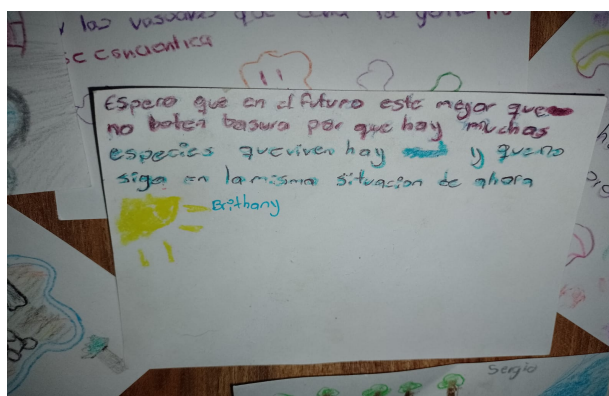 y las que la
se concientica
Espero que en el futuro este mejor que
no boten basura por que hay muchas
especies que viven hay y que no
siga en la misma situacion de ahora
Brithany
Sergio